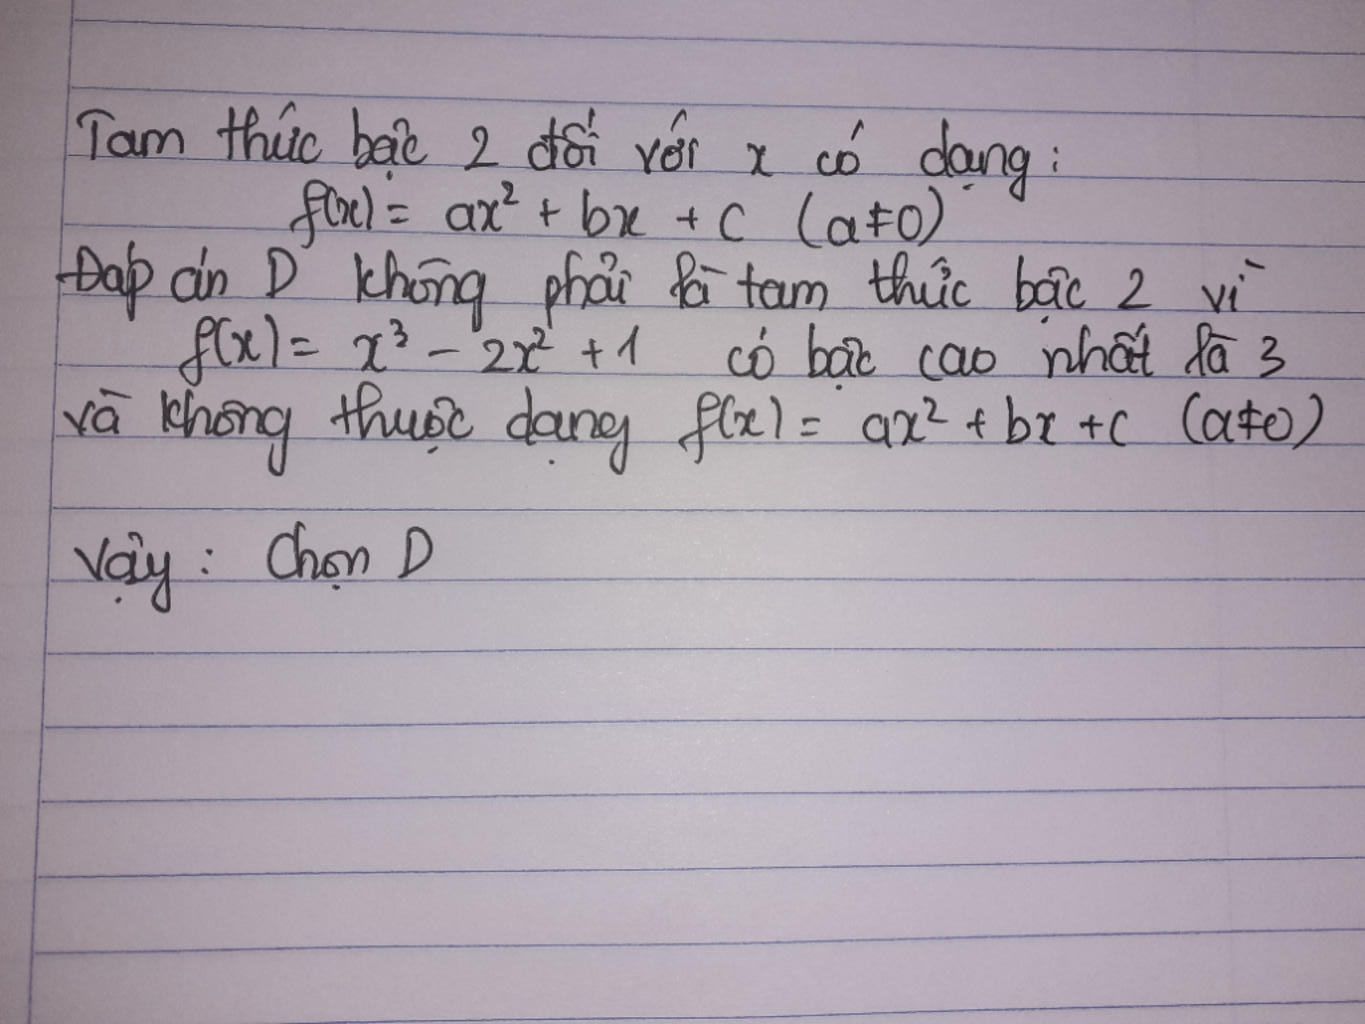 Tam thức bậc 2 đối với x có dạng:
f(x) = ax² + bx + c (a≠0)
Đáp án D không phải là tam thức bậc 2 vì
f(x) = x³ - 2x² + 1 có bậc cao nhất là 3
và không thuộc dạng f(x) = ax² + bx + c (a≠0)
Vậy: Chọn D